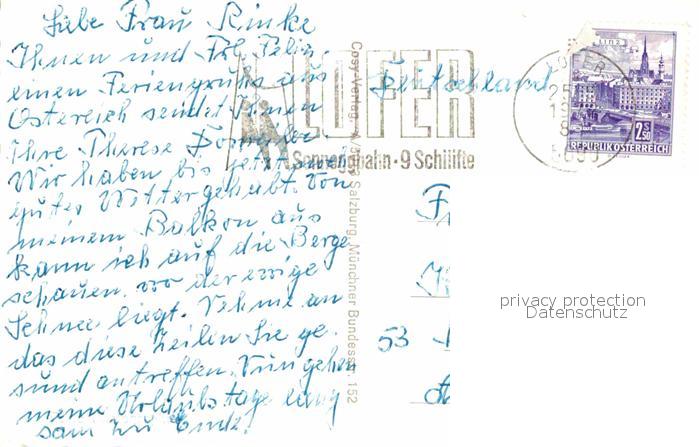 Liebe Frau Rinke
Ihnen und Frl. Felix
einen Feriengruß aus
Österreich sendet Ihnen
Ihre Therese
Wir haben bis jetzt
gutes Wetter gehabt. Von
meinem Balkon aus
kann ich auf die Berge
schauen wo der ewige
Schnee liegt. Nehme an
das diese Zeilen Sie ge-
sund antreffen. Nun gehen
meine Urlaubstage lang
sam zu Ende!
Cosy-Verlag, Salzburg, Münchner Bundesstr. 152
LOFER
Sonneggbahn · 9 Schilifte
Deutschland
LINZ
2.50 S
REPUBLIK ÖSTERREICH
53
privacy protection
Datenschutz